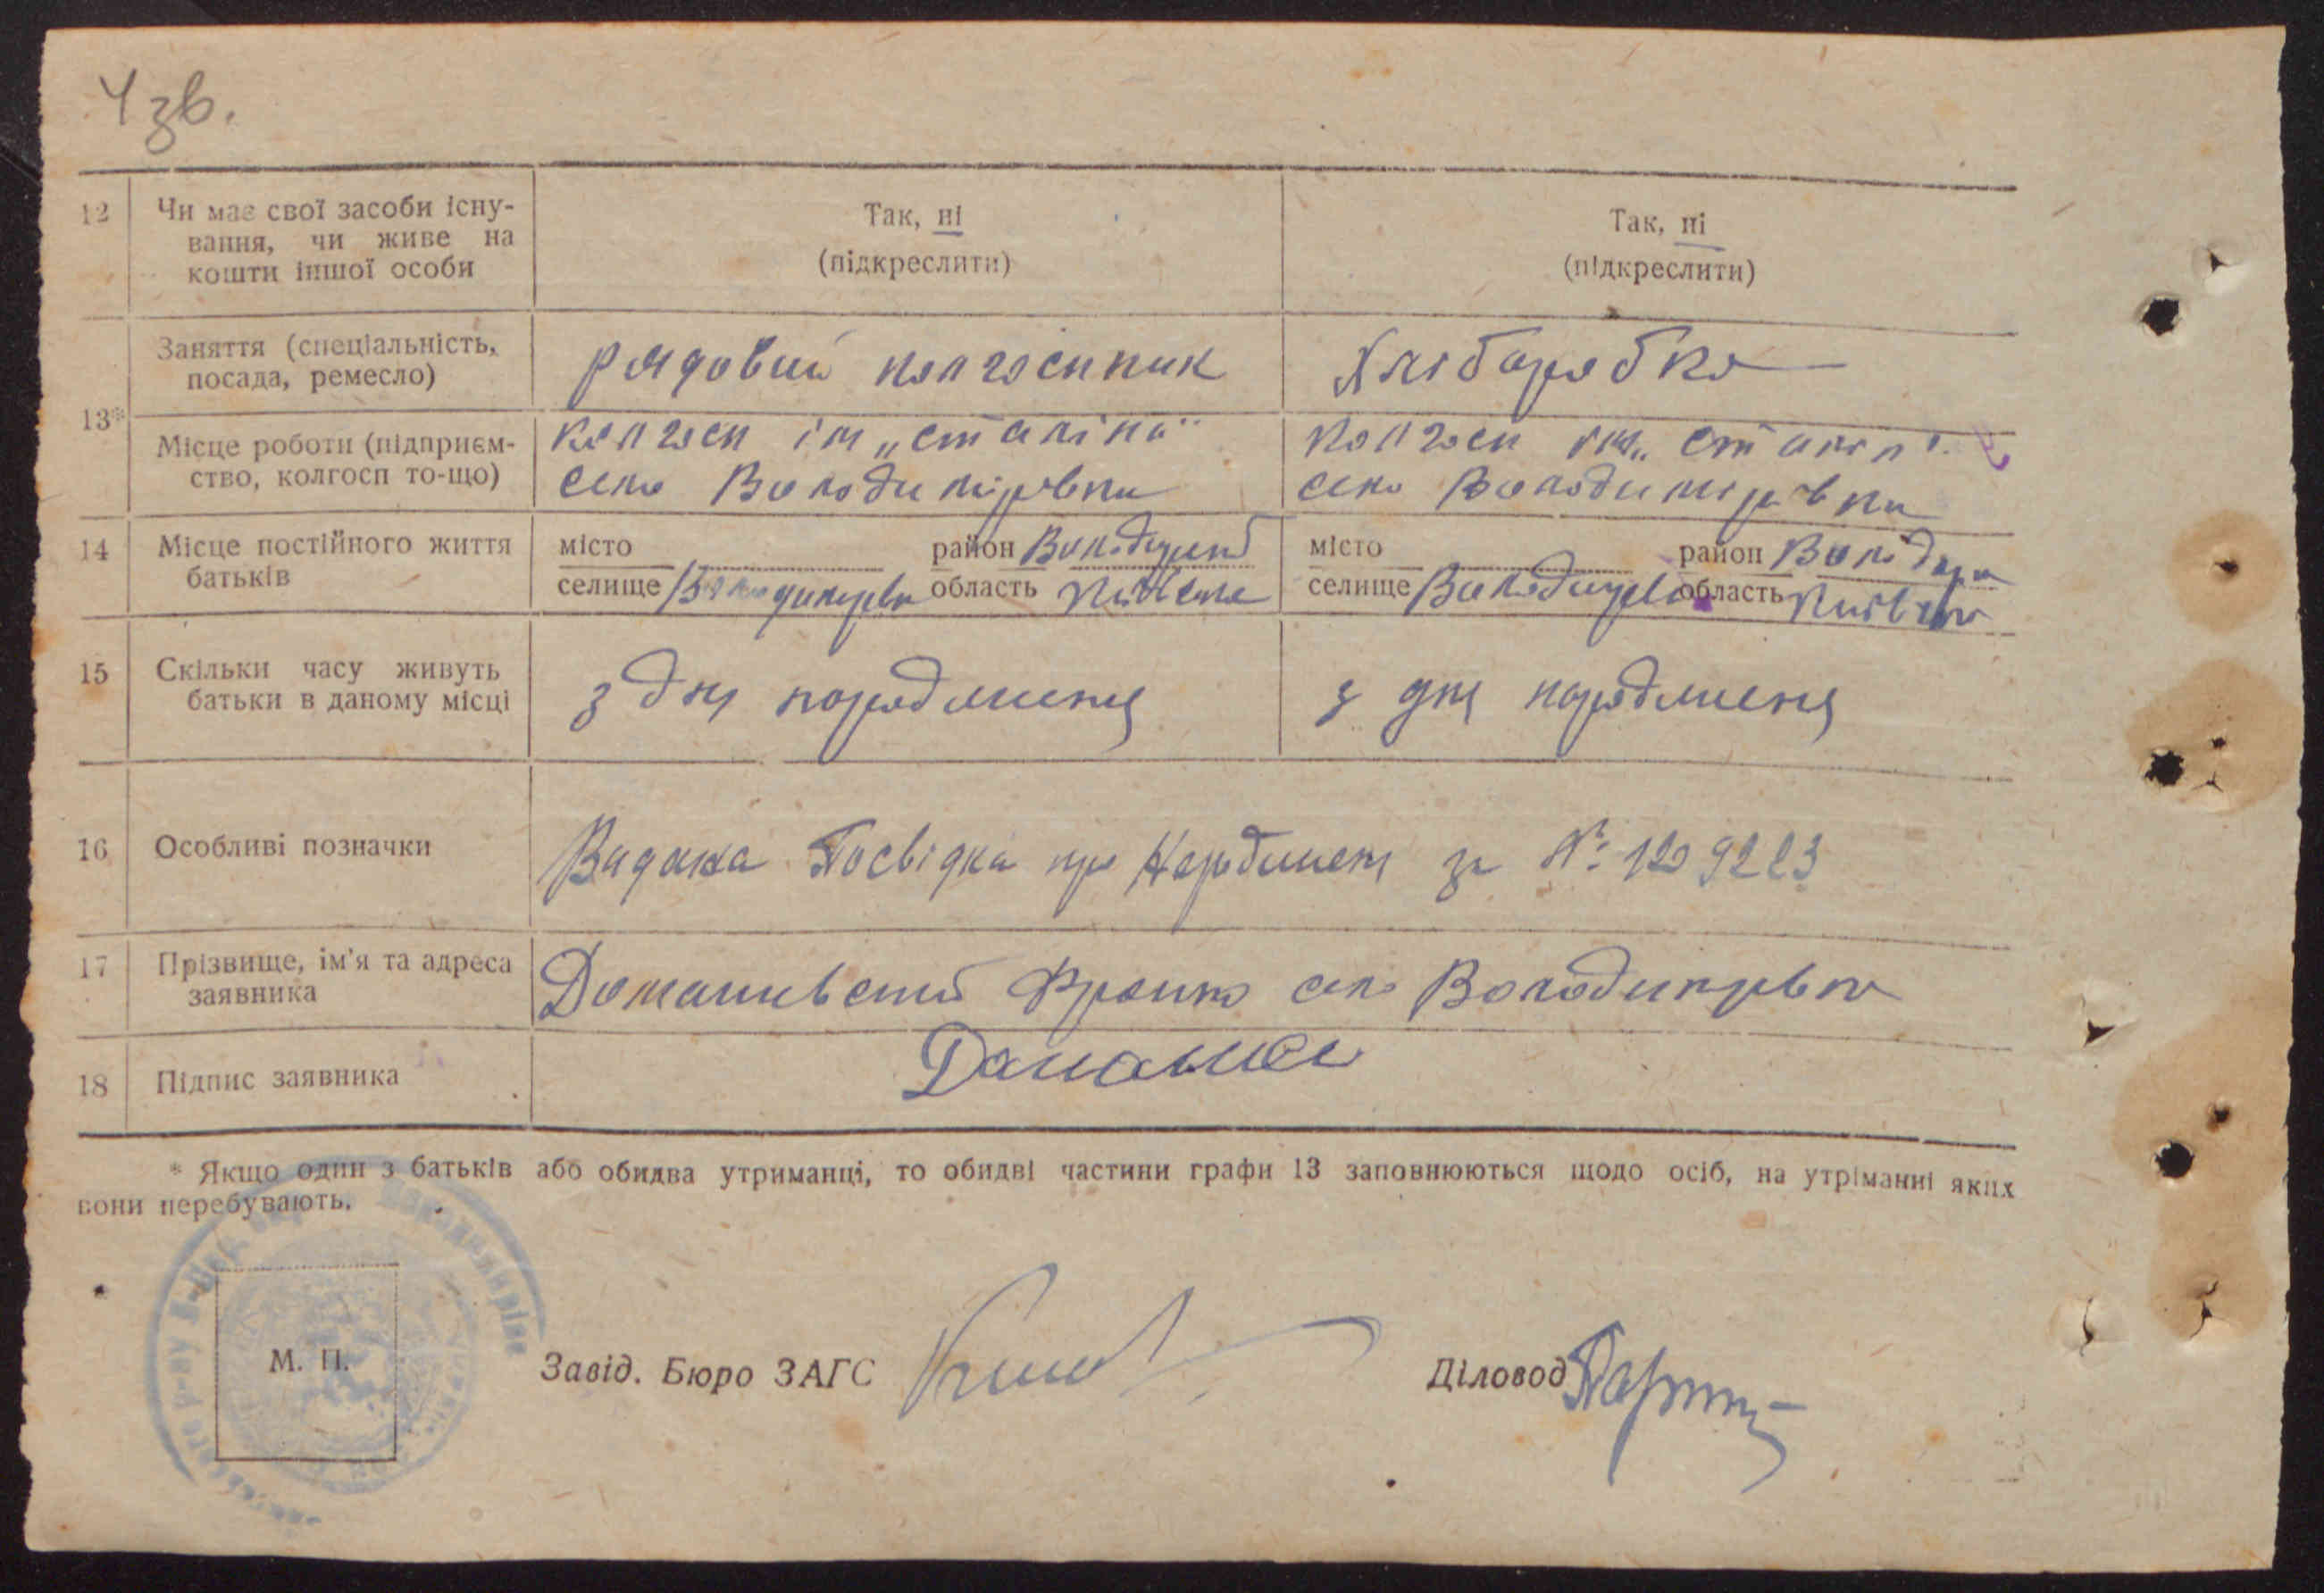 4 зв.
12 Чи має свої засоби існу- Так, ні Так, ні
вання, чи живе на (підкреслити) (підкреслити)
кошти іншої особи
13* Заняття (спеціальність, рядовий колгоспник Хліборобка
посада, ремесло)
Місце роботи (підприєм- колгосп ім „сталіна" колгосп ім.
ство, колгосп то-що) село Володимирівка село Володимирівка
14 Місце постійного життя місто район місто район
батьків селище область Київська селище область Київська
15 Скільки часу живуть з дня породження з дня породження
батьки в даному місці
16 Особливі позначки Видана Посвідка про за №
17 Прізвище, ім'я та адреса Франко село Володимирівка
заявника
18 Підпис заявника
* Якщо один з батьків або обидва утриманці, то обидві частини графи 13 заповнюються щодо осіб, на утріманні яких
вони перебувають.
М. П. Завід. Бюро ЗАГС Діловод